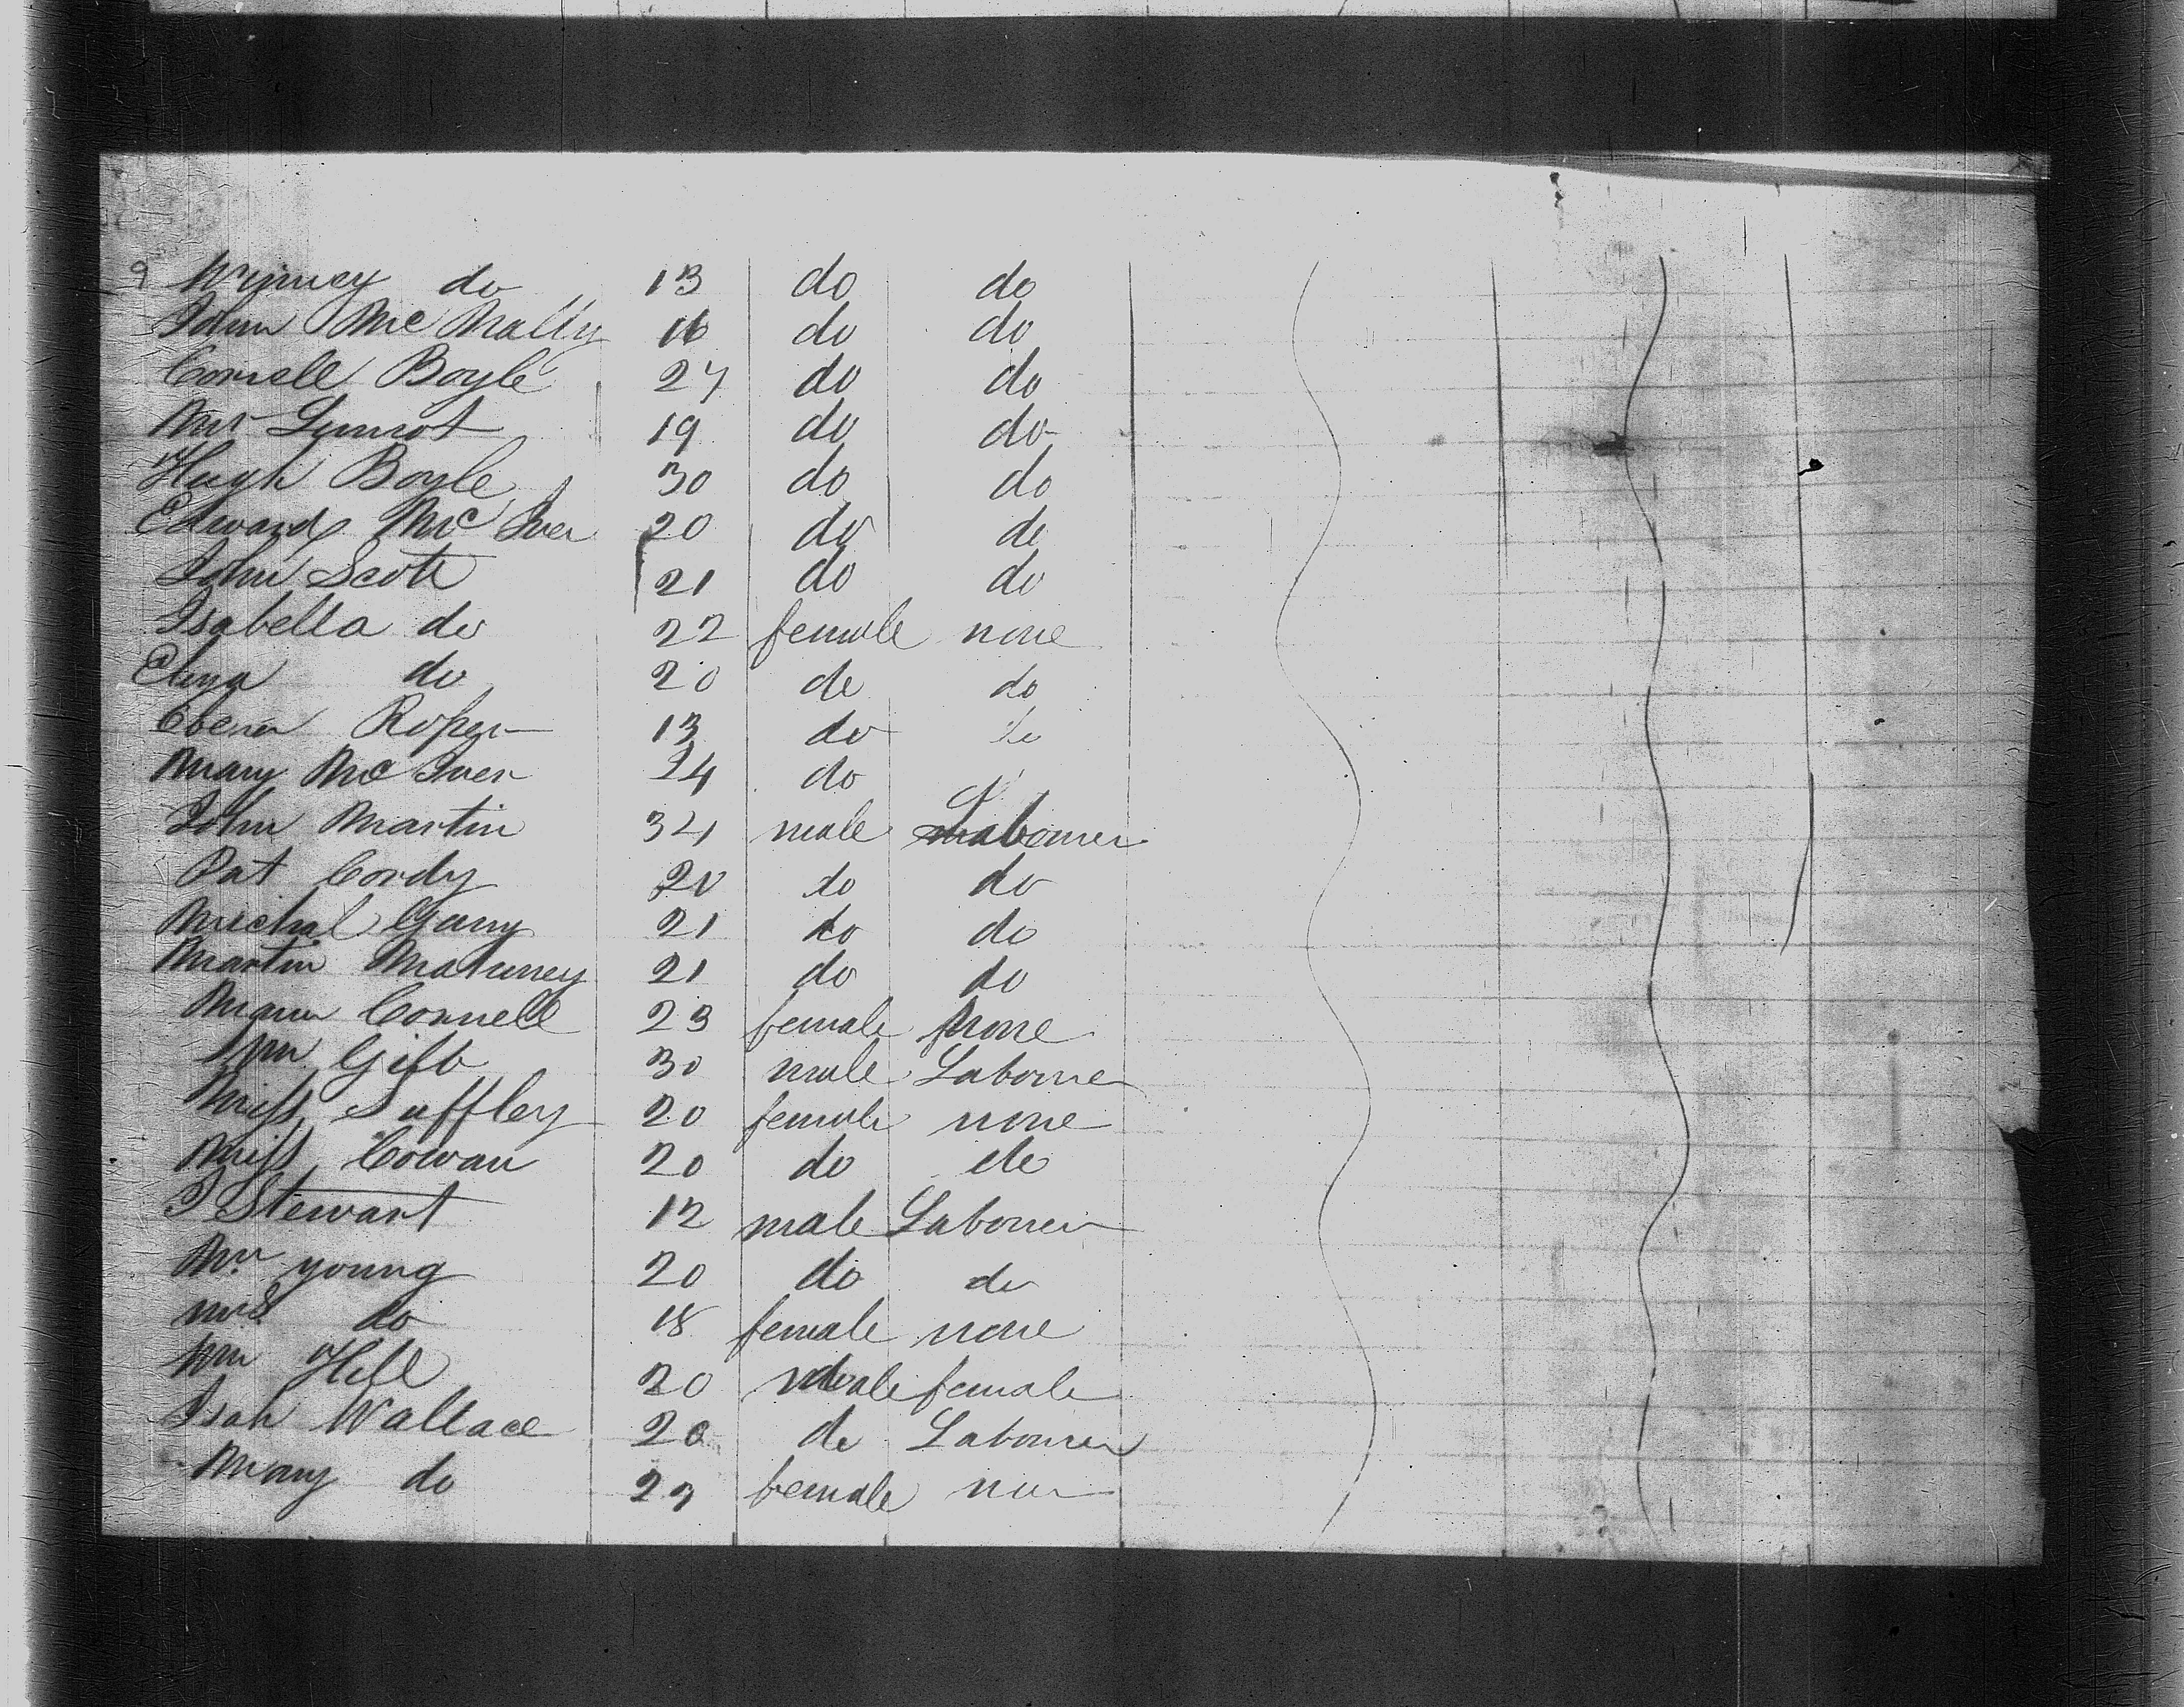 9 Winney do 13 do do
John McNally 16 do do
Connell Boyle 27 do do
Mr 19 do do
Hugh Boyle 30 do do
Edward McIver 20 do do
John Scott 21 do do
Isabella do 22 female none
Eliza do 20 do do
Roper 13 do do
Mary McIver 24 do
John Martin 34 male Labourer
Pat Cordy 20 do do
Michal 21 do do
Martin 21 do do
Connell 23 female none
Wm Gibb 30 male Labourer
Miss Suffley 20 female none
Miss Cowan 20 do do
J Stewart 12 male Labourer
Mr. young 20 do do
Mrs do 18 female none
Wm Hill 20 male female
Isah Wallace 20 do Labourer
Mary do female non